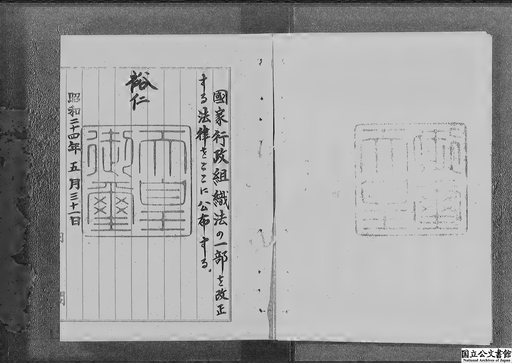 國家行政組織法の一部を改正
する法律をここに公布する。
裕仁
天皇
御璽
昭和二十四年五月三十一日
国立公文書館
National Archives of Japan